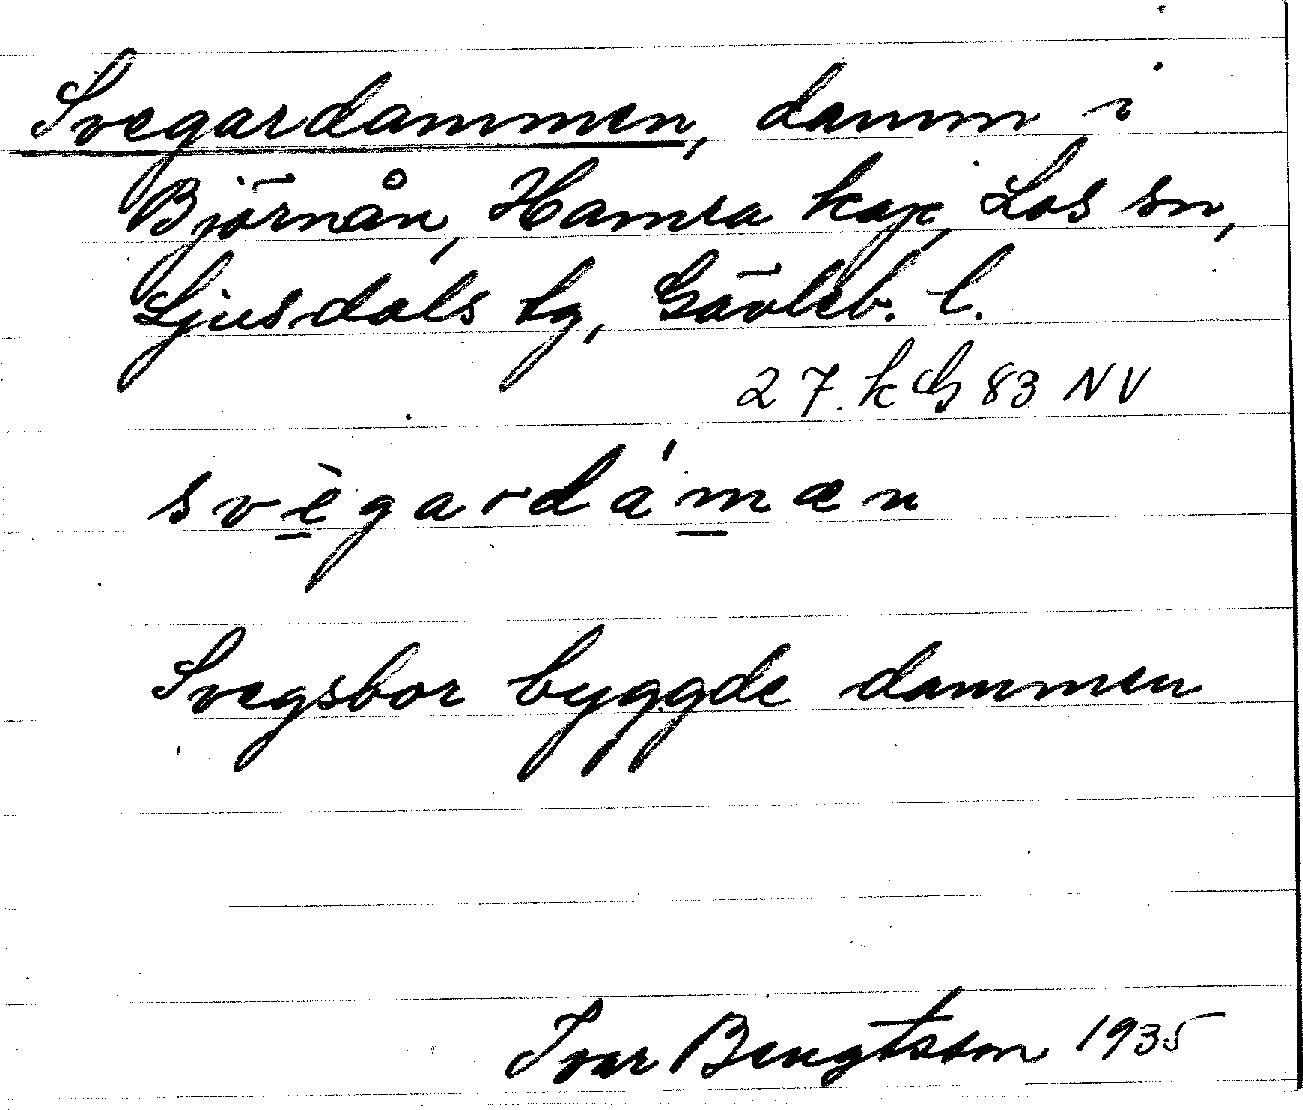 Svegardammen, damm i
Björnån, Hamra kap, Los sn,
Ljusdals tg, Gävleb. l.
27. k G 83 NV
svègardámæn
Svegsbor byggde dammen
Ivar Bengtsson 1935